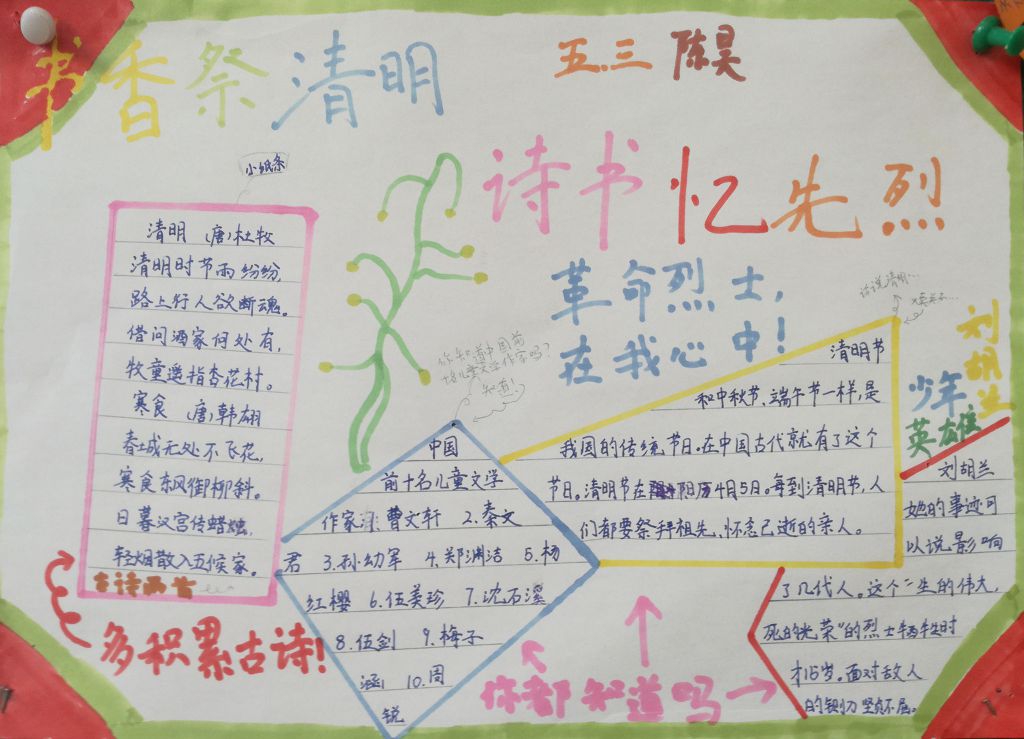 书香祭清明
五.三 陈昊
诗书忆先烈
革命烈士,
在我心中!
小纸条
清明 (唐)杜牧
清明时节雨纷纷,
路上行人欲断魂。
借问酒家何处有,
牧童遥指杏花村。
寒食 (唐)韩翃
春城无处不飞花,
寒食东风御柳斜。
日暮汉宫传蜡烛,
轻烟散入五侯家。
古诗两首
多积累古诗!
你知道中国前
十名儿童文学作家吗?
知道!
中国
前十名儿童文学
作家 曹文轩 2.秦文
君 3.孙幼军 4.郑渊洁 5.杨
红樱 6.伍美珍 7.沈石溪
8.伍剑 9.梅子
涵 10.周
锐
你都知道吗
话说清明...
清明节
和中秋节、端午节一样,是
我国的传统节日。在中国古代就有了这个
节日。清明节在阳历4月5日。每到清明节,人
们都要祭拜祖先、怀念已逝的亲人。
少年
英雄
刘胡兰
刘胡兰
她的事迹可
以说影响
了几代人。这个“生的伟大,
死的光荣”的烈士牺牲时
才15岁。面对敌人
的铡刀坚贞不屈。